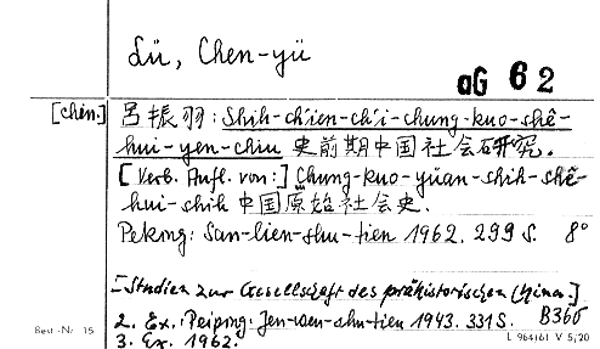 Lü, Chen-yü
aG 62
[chin.] 呂振羽: Shih-ch'ien-ch'i-chung-kuo-shê-
hui-yen-chiu 史前期中国社会研究.
[Verb. Aufl. von:] Chung-kuo-yüan-shih-shê-
hui-shih 中国原始社会史.
Peking: San-lien-shu-tien 1962. 299 S. 8°
[Studien zur Gesellschaft des prähistorischen China.]
2. Ex.: Peiping: Jen-wen-shu-tien 1943. 331 S. B365
3. Ex. 1962.
Best.-Nr. 15
L 964161 V 5/20